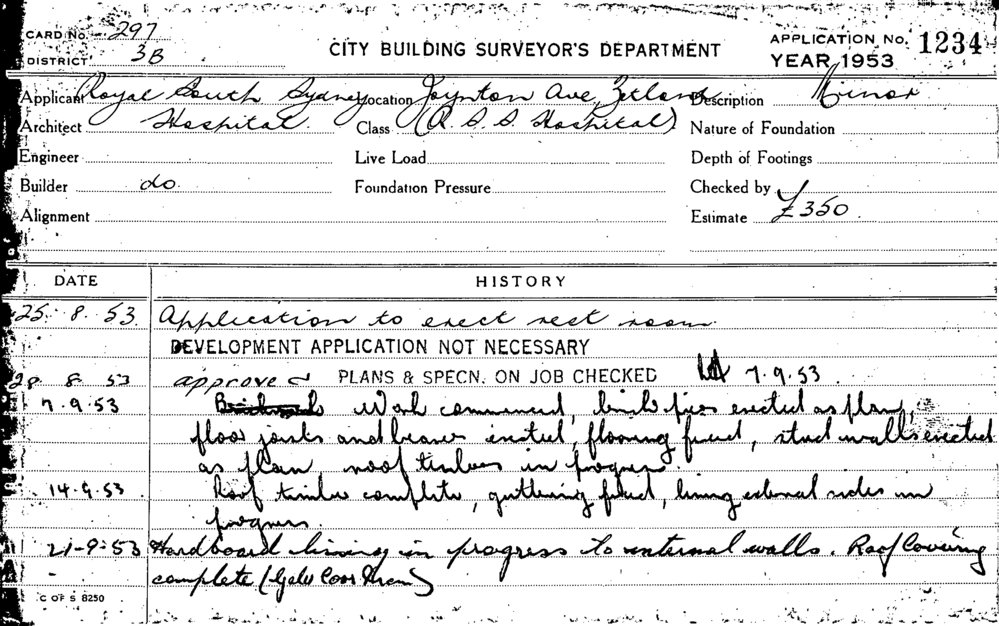 CARD No. 297
DISTRICT 3B
CITY BUILDING SURVEYOR'S DEPARTMENT
APPLICATION No. 1234
YEAR 1953
Applicant Royal South Sydney Location Joynton Ave, Zetland Description Minor
Architect Hospital. Class (R.S.S. Hospital) Nature of Foundation
Engineer Live Load Depth of Footings
Builder do. Foundation Pressure Checked by
Alignment Estimate £350
DATE HISTORY
25. 8. 53. Application to erect rest room.
DEVELOPMENT APPLICATION NOT NECESSARY
28. 8. 53 approved PLANS & SPECN. ON JOB CHECKED 7.9.53.
7.9.53 Work commenced, brick piers erected as plan,
floor joists and bearers erected, flooring fixed, stud walls erected
as plan, roof timbers in progress.
14.9.53 Roof timber complete, guttering fixed, lining external sides in
progress.
21-9-53 Hardboard lining in progress to internal walls. Roof Covering
complete (Galv Corr Iron)
C OF S 8250